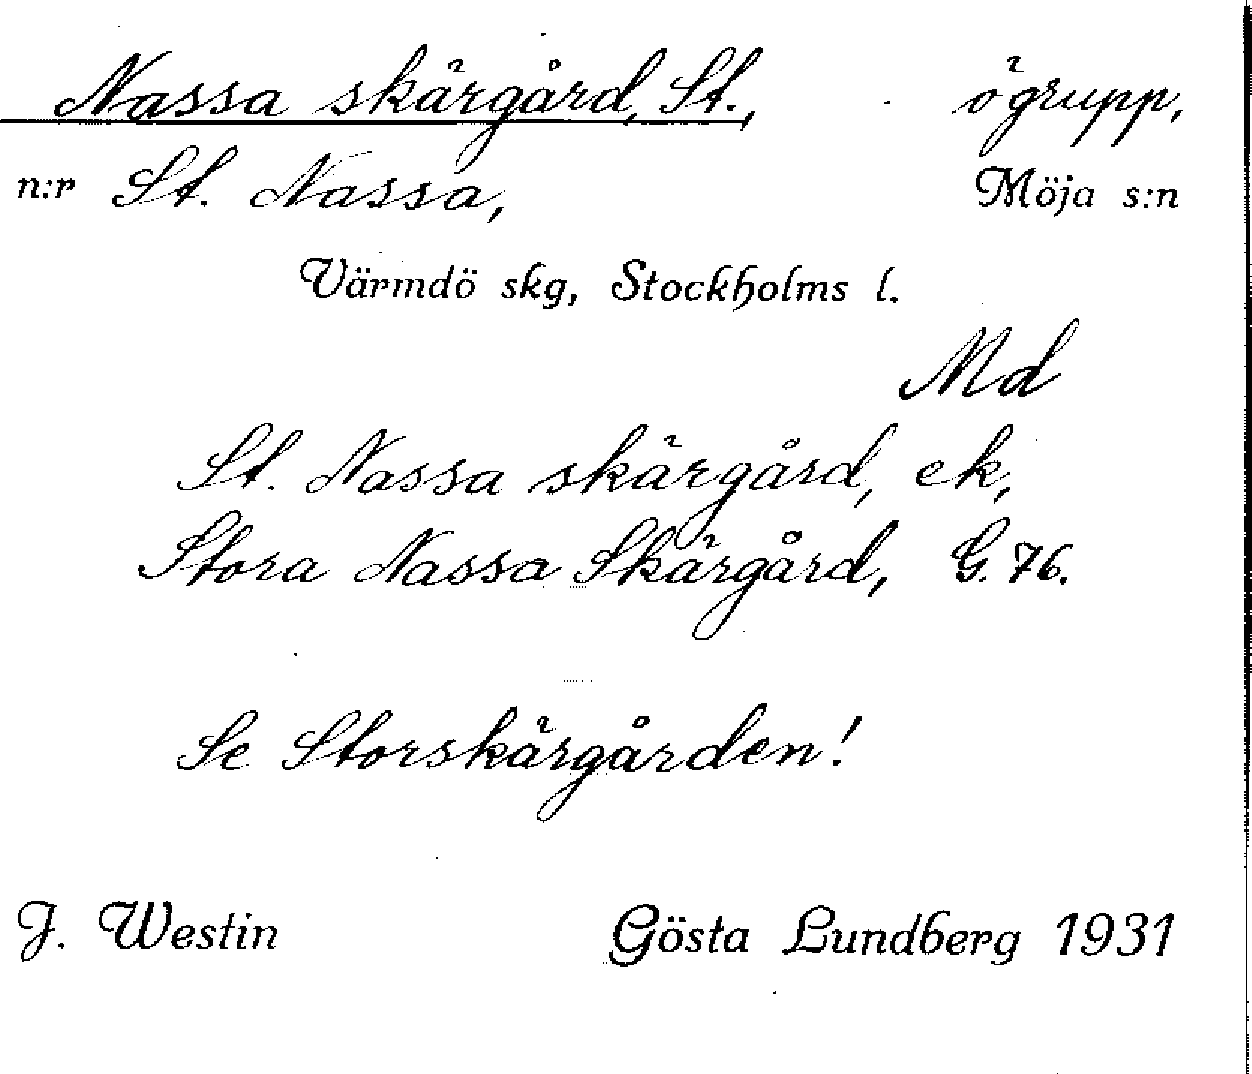 Nassa skärgård, St., ögrupp,
n:r St. Nassa, Möja s:n
Värmdö skg, Stockholms l.
Md
St. Nassa skärgård, ek,
Stora Nassa Skärgård, G. 76.
Se Storskärgården!
J. Westin Gösta Lundberg 1931